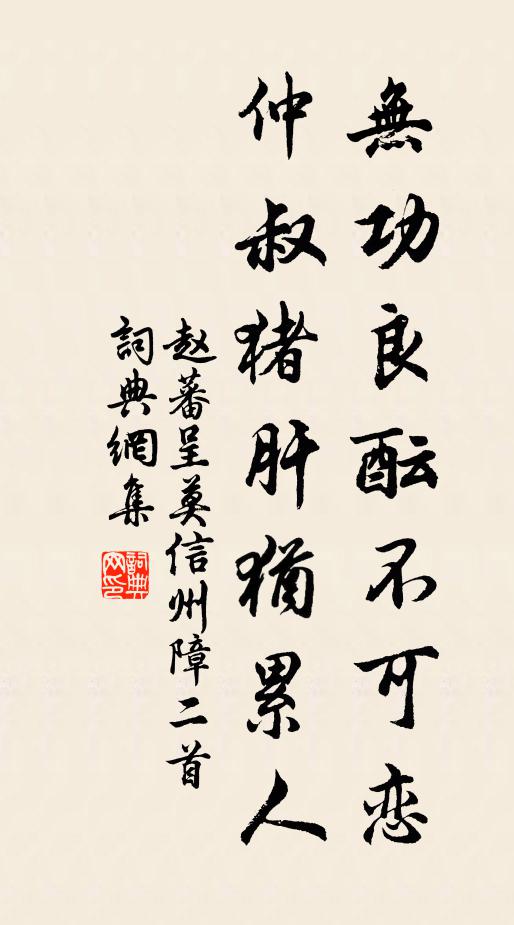 無功良酝不可恋
仲叔猪肝猶累人
赵蕃呈莫信州障二首
詞典網集
詞典網印